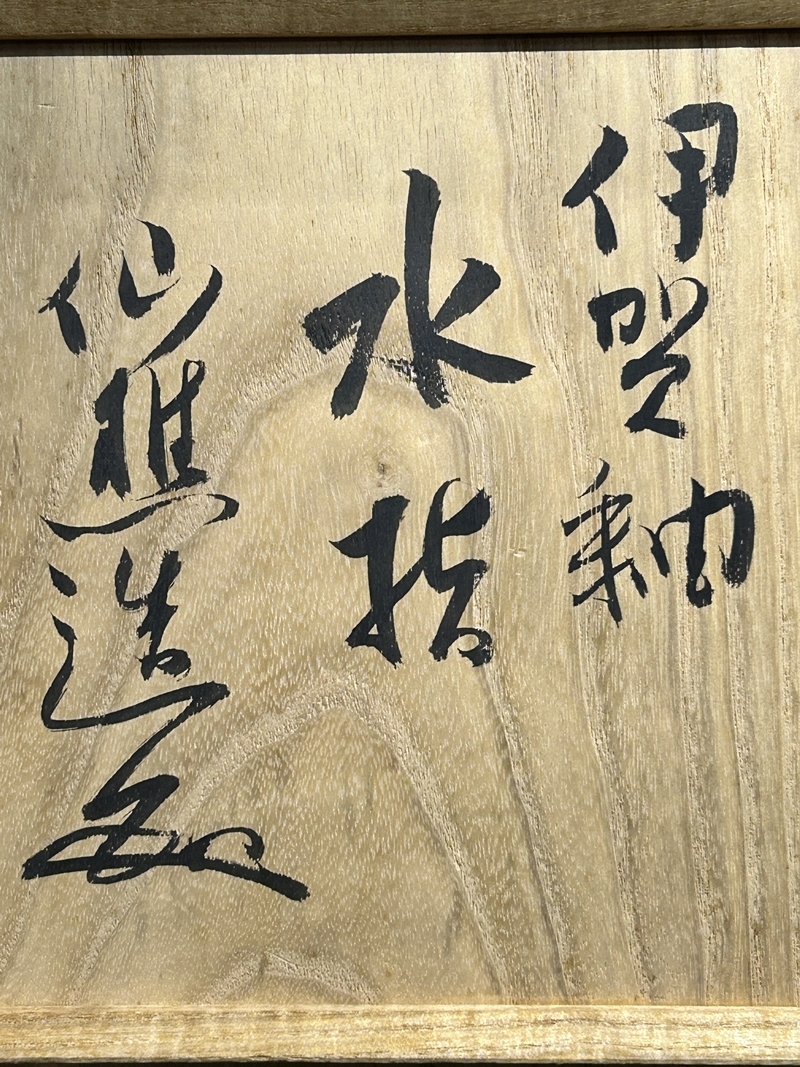 伊賀釉
水指
仙樵造